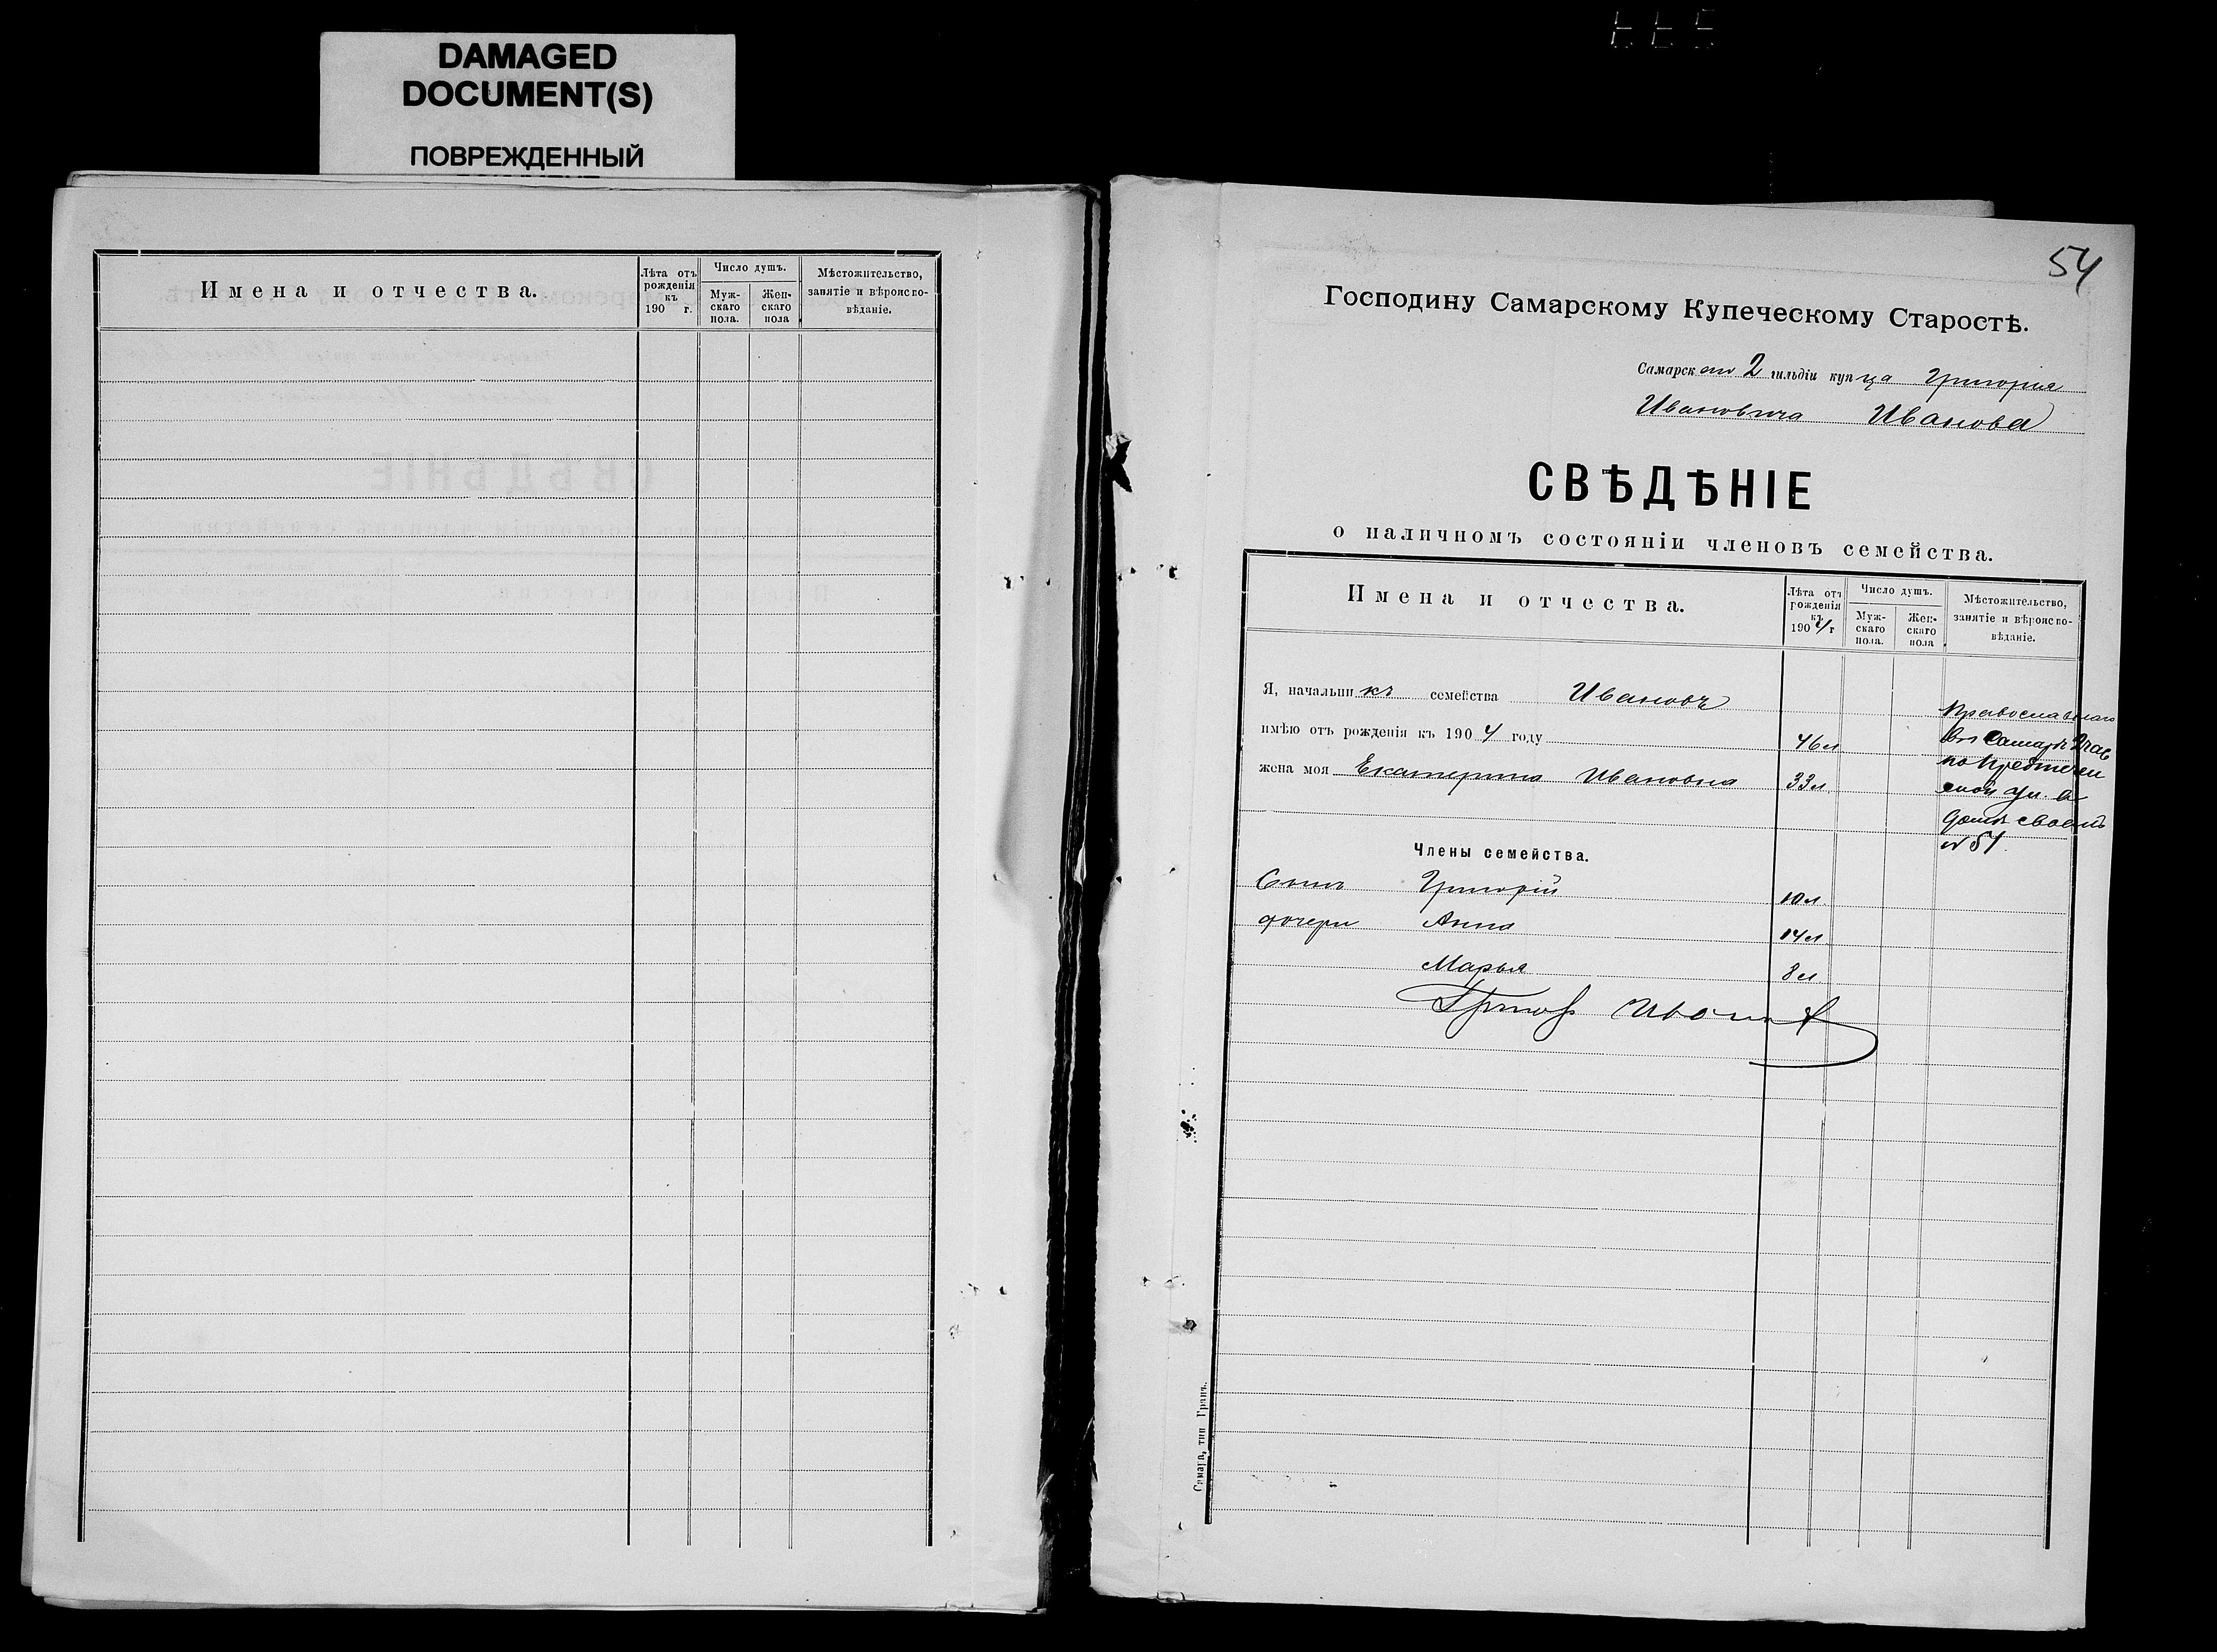 DAMAGED
DOCUMENT(S)
ПОВРЕЖДЕННЫЙ
Имена и отчества.
Лѣта отъ рожденія къ 190 г.
Число душъ.
Мужскаго пола.
Женскаго пола
Мѣстожительство, занятіе и вѣроисповѣданіе.
54
Господину Самарскому Купеческому Старостѣ.
Самарскаго 2 гильдіи купца Григорія
Ивановича Иванова
СВѢДѢНІЕ
о наличномъ состояніи членовъ семейства.
Имена и отчества.
Лѣта отъ рожденія къ 1904 г
Число душъ.
Мужскаго пола.
Женскаго пола
Мѣстожительство, занятіе и вѣроисповѣданіе.
Я, начальникъ семейства Ивановъ
Православнаго
имѣю отъ рожденія къ 1904 году 46 л
въ Самарѣ 2 час
жена моя Екатерина Ивановна 33 л.
по Предтечен
ской ул. в
домѣ своемъ
№ 51.
Члены семейства.
Сынъ Григорій 10 л.
дочери Анна 14 л
Марья 8 л
Григор Иванов
Самара, тип Гранъ.